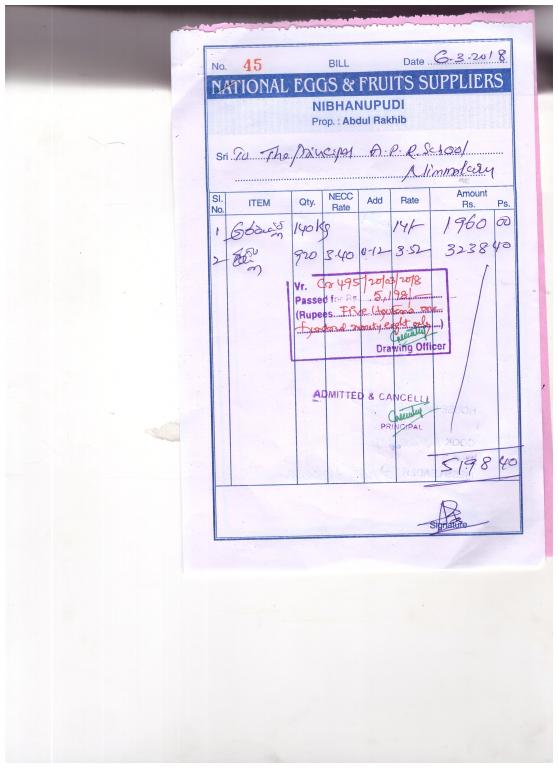 No. 45 BILL Date 6-3-2018
NATIONAL EGGS & FRUITS SUPPLIERS
NIBHANUPUDI
Prop. : Abdul Rakhib
Sri To The Principal A.P.R. School
Nimmakury
Sl. No. ITEM Qty. NECC Rate Add Rate Amount Rs. Ps.
1 140 kg 14/- 1960 00
2 920 3-40 0-12 3-52 3238 40
Vr. Cr 495/20/03/2018
Passed for Rs. 5,198/
(Rupees Five thousand one
hundred ninety eight only)
Drawing Officer
ADMITTED & CANCELL
PRINCIPAL
5198 40
Signature